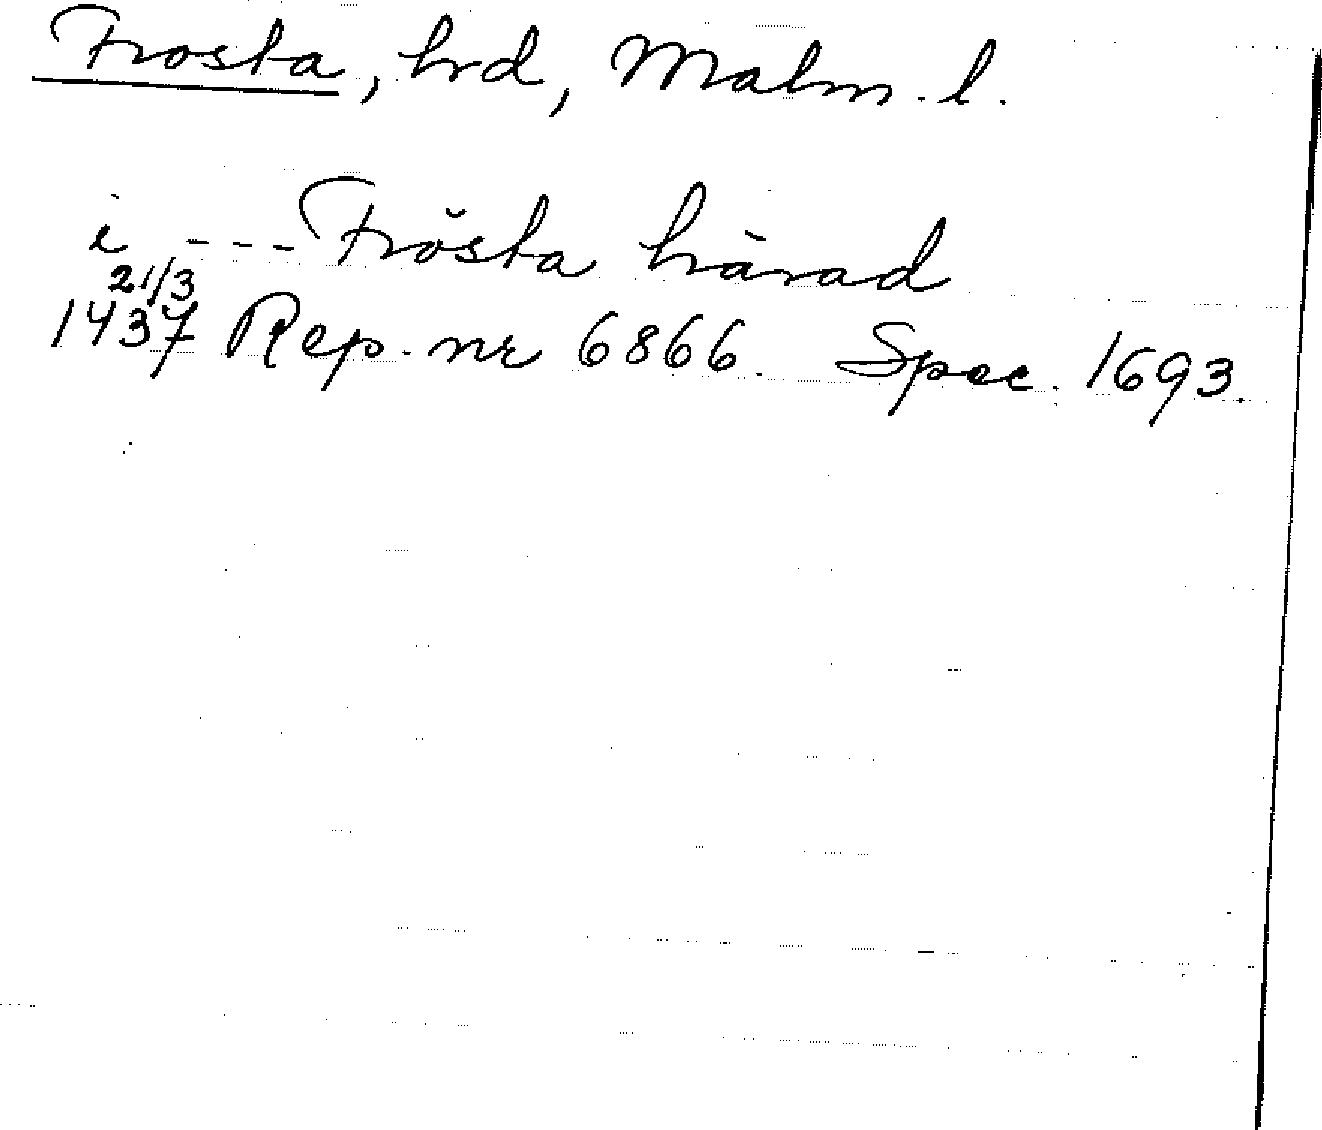 Frosta, hrd, Malm. l.
i --- Frösta härad
21/3
1437 Rep. nr 6866. Spec. 1693.